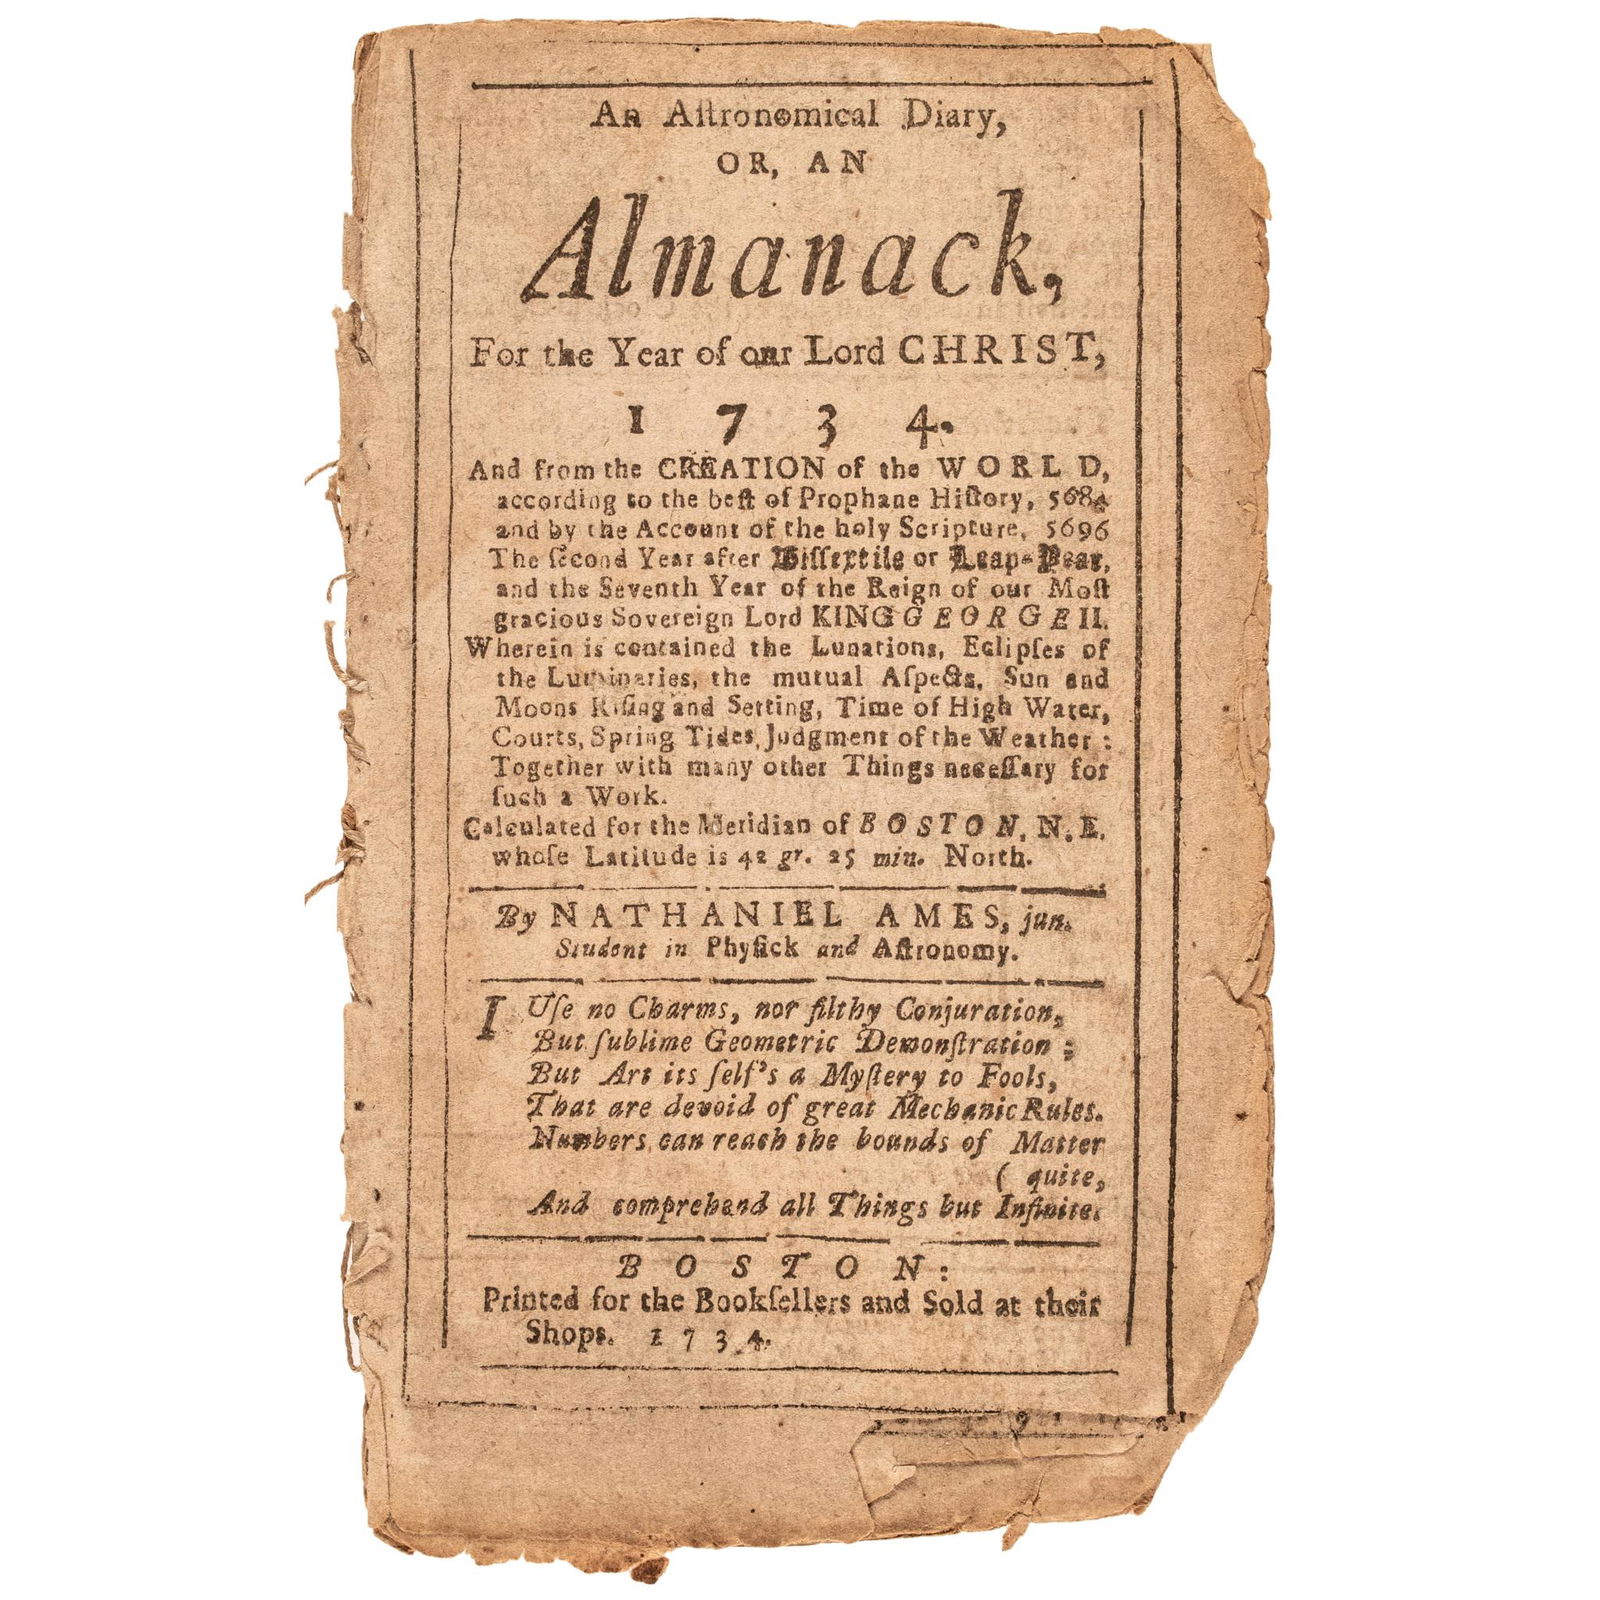 An Aſtronomical Diary,
OR, AN
Almanack,
For the Year of our Lord CHRIST,
1 7 3 4.
And from the CREATION of the WORLD,
according to the beſt of Prophane Hiſtory, 568
and by the Account of the holy Scripture, 5696
The ſecond Year after Biſſextile or Leap-Year,
and the Seventh Year of the Reign of our Moſt
gracious Sovereign Lord KING GEORGE II.
Wherein is contained the Lunations, Eclipſes of
the Luminaries, the mutual Aſpects, Sun and
Moons Riſing and Setting, Time of High Water,
Courts, Spring Tides, Judgment of the Weather:
Together with many other Things neceſſary for
ſuch a Work.
Calculated for the Meridian of BOSTON, N.E.
whoſe Latitude is 42 gr. 25 min. North.
By NATHANIEL AMES, jun.
Student in Phyſick and Aſtronomy.
I Uſe no Charms, nor filthy Conjuration,
But ſublime Geometric Demonſtration;
But Art its ſelf's a Myſtery to Fools,
That are devoid of great Mechanic Rules.
Numbers can reach the bounds of Matter
( quite,
And comprehend all Things but Infinite.
BOSTON:
Printed for the Bookſellers and Sold at their
Shops. 1 7 3 4.